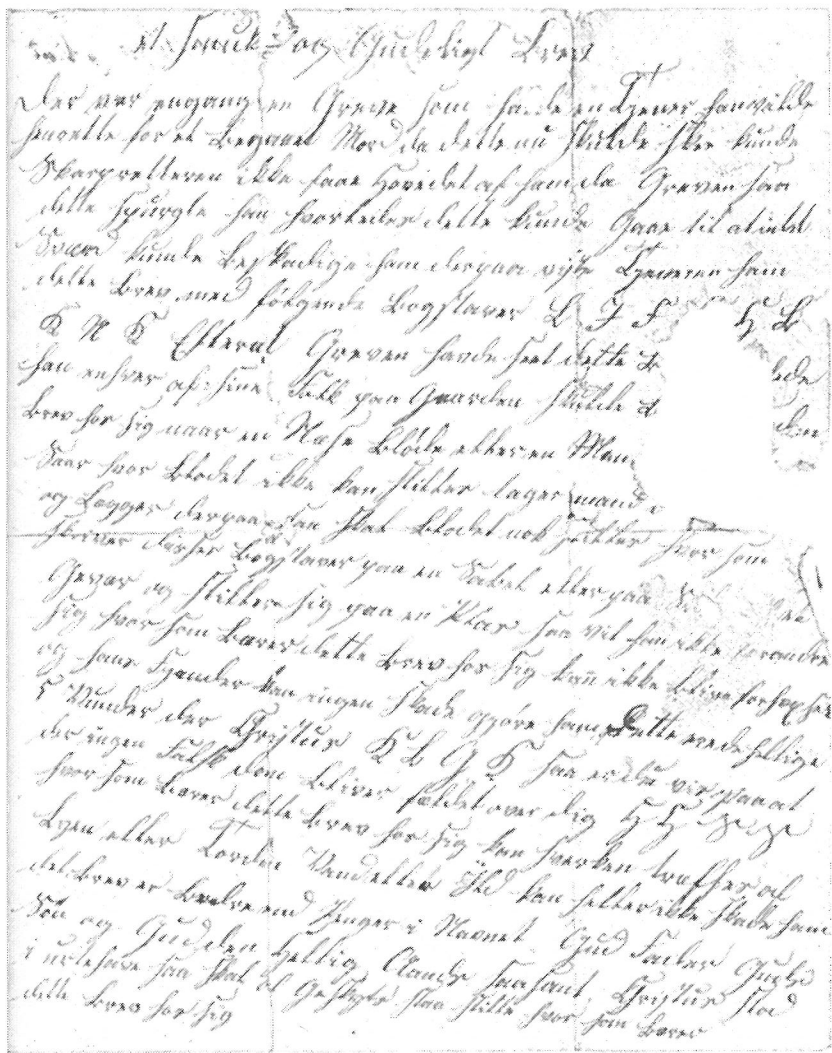 et Smuk og Gudeligt Brev
Der var engang en Greve som havde en Tjener han vilde
henrette for et begaaet Mord da dette nu skulde skee kunde
Skarpretteren ikke faae Hovedet af ham da Greven saa
dette spurgte han hvorledes dette kunde gaae til at intet
Sværd kunde beskadige ham derpaa viiste Tjeneren ham
dette Brev med følgende Bogstaver L I F H B
K N K Efterat Greven havde seet dette
han enhver af sine Folk paa Gaarden skulde
Brev hos sig naar en Næse Bløde eller en
Saar hvor Blodet ikke kan stilles tager mand
og Lægger derpaa saa skal Blodet nok stilles hvor som
skriver disse Bogstaver paa en Sabel eller paa
Gevær og stiller sig paa en Plads saa vil han ikke forandre
sig hvor som bærer dette Brev hos sig kan ikke blive forhexset
og hans Fjender kan ingen skade gjøre ham Dette er de hellige
5 Vunder der Christus K B G K saa er du vis paa at
der ingen Falsk dom bliver fældet over dig H H
hvor som bærer dette Brev hos sig kan hverken træffes af
Lyn eller Torden Vand eller Ild kan heller ikke skade ham
det Brev er bedre end Penger i Navnet Gud Fader Guds
Søn og Gud den Hellig Aands saasant Christus stod
i urtehave saa skal al Geskyts staa stille hvor som bærer
dette Brev hos sig